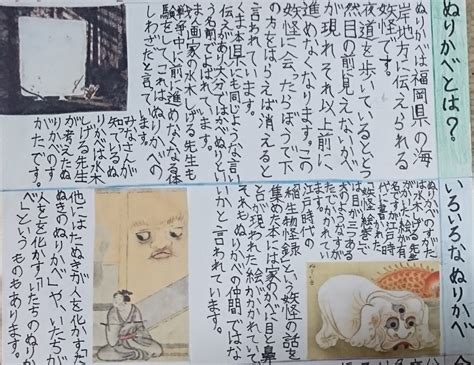 ぬりかべとは？
ぬりかべは福岡県の海
岸地方に伝えられる
妖怪です。
夜道を歩いているととつ
然目の前に見えないかべ
が現れそれ以上前に
進めなくなります。この
妖怪に会ったらぼうで下
の方をはらえば消えると
言われています。
くま本県にも同じような言い
伝えがあり大分ではかべぬりとい
う名前でよばれています。
また画家の水木しげる先生も
戦争中に前に進めなくなる体
験をしてこれはぬりかべの
しわざだと言っています。
みなさんが
知っているぬ
りかべは水木
しげる先生
が考えたす
がたです。
いろいろなぬりかべ
ぬりかべのすがた
は水木しげる先
名ですが江戸時
代に書かれた
妖怪絵巻で
は目が三つある
でかかれてい
江戸時代の
稲生物怪録という妖怪の話を
集めた本には家のかべに目と鼻
がかかれていて
それもぬりかべの仲間ではな
いかと言われています。
他にはたぬきが人を化かすた
ぬきのぬりかべや、いたちが
人を化かすいたちのぬりか
べというものもあります。